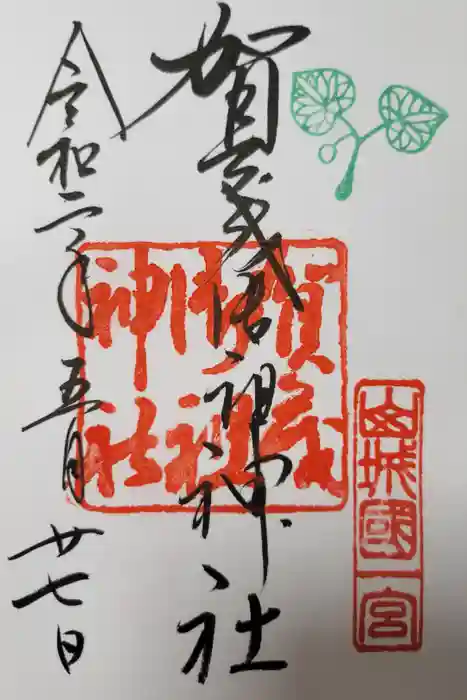 山城國一宮
賀茂御祖神社
賀茂
御祖
神社
令和二年五月廿七日